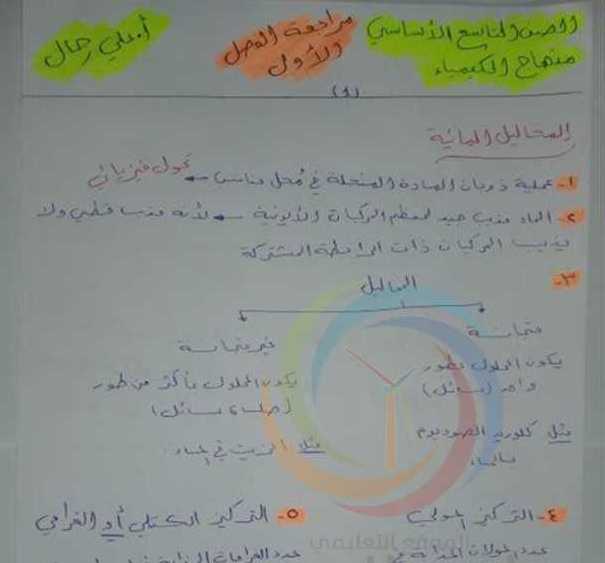 الصف التاسع الأساسي
منهاج الكيمياء
مراجعة الفصل
الأول
أ. علي رحال
(1)
المحاليل المائية
1- عملية ذوبان المادة المنحلة في مُحل مناسب ← تحول فيزيائي
2- الماء مذيب جيد لمعظم المركبات الأيونية ← لأنه مذيب قطبي ولا
يذيب المركبات ذات الرابطة المشتركة
3- المحاليل
متجانسة
يكون المحلول بطور
واحد (سائل)
مثل كلوريد الصوديوم
بالماء
غير متجانسة
يكون المحلول بأكثر من طور
(صلب، سائل)
مثل الزيت في الماء
4- التركيز المولي
عدد المولات المذابة في
5- التركيز الكتلي أو الغرامي
عدد الغرامات المذابة
الموقع التعليمي